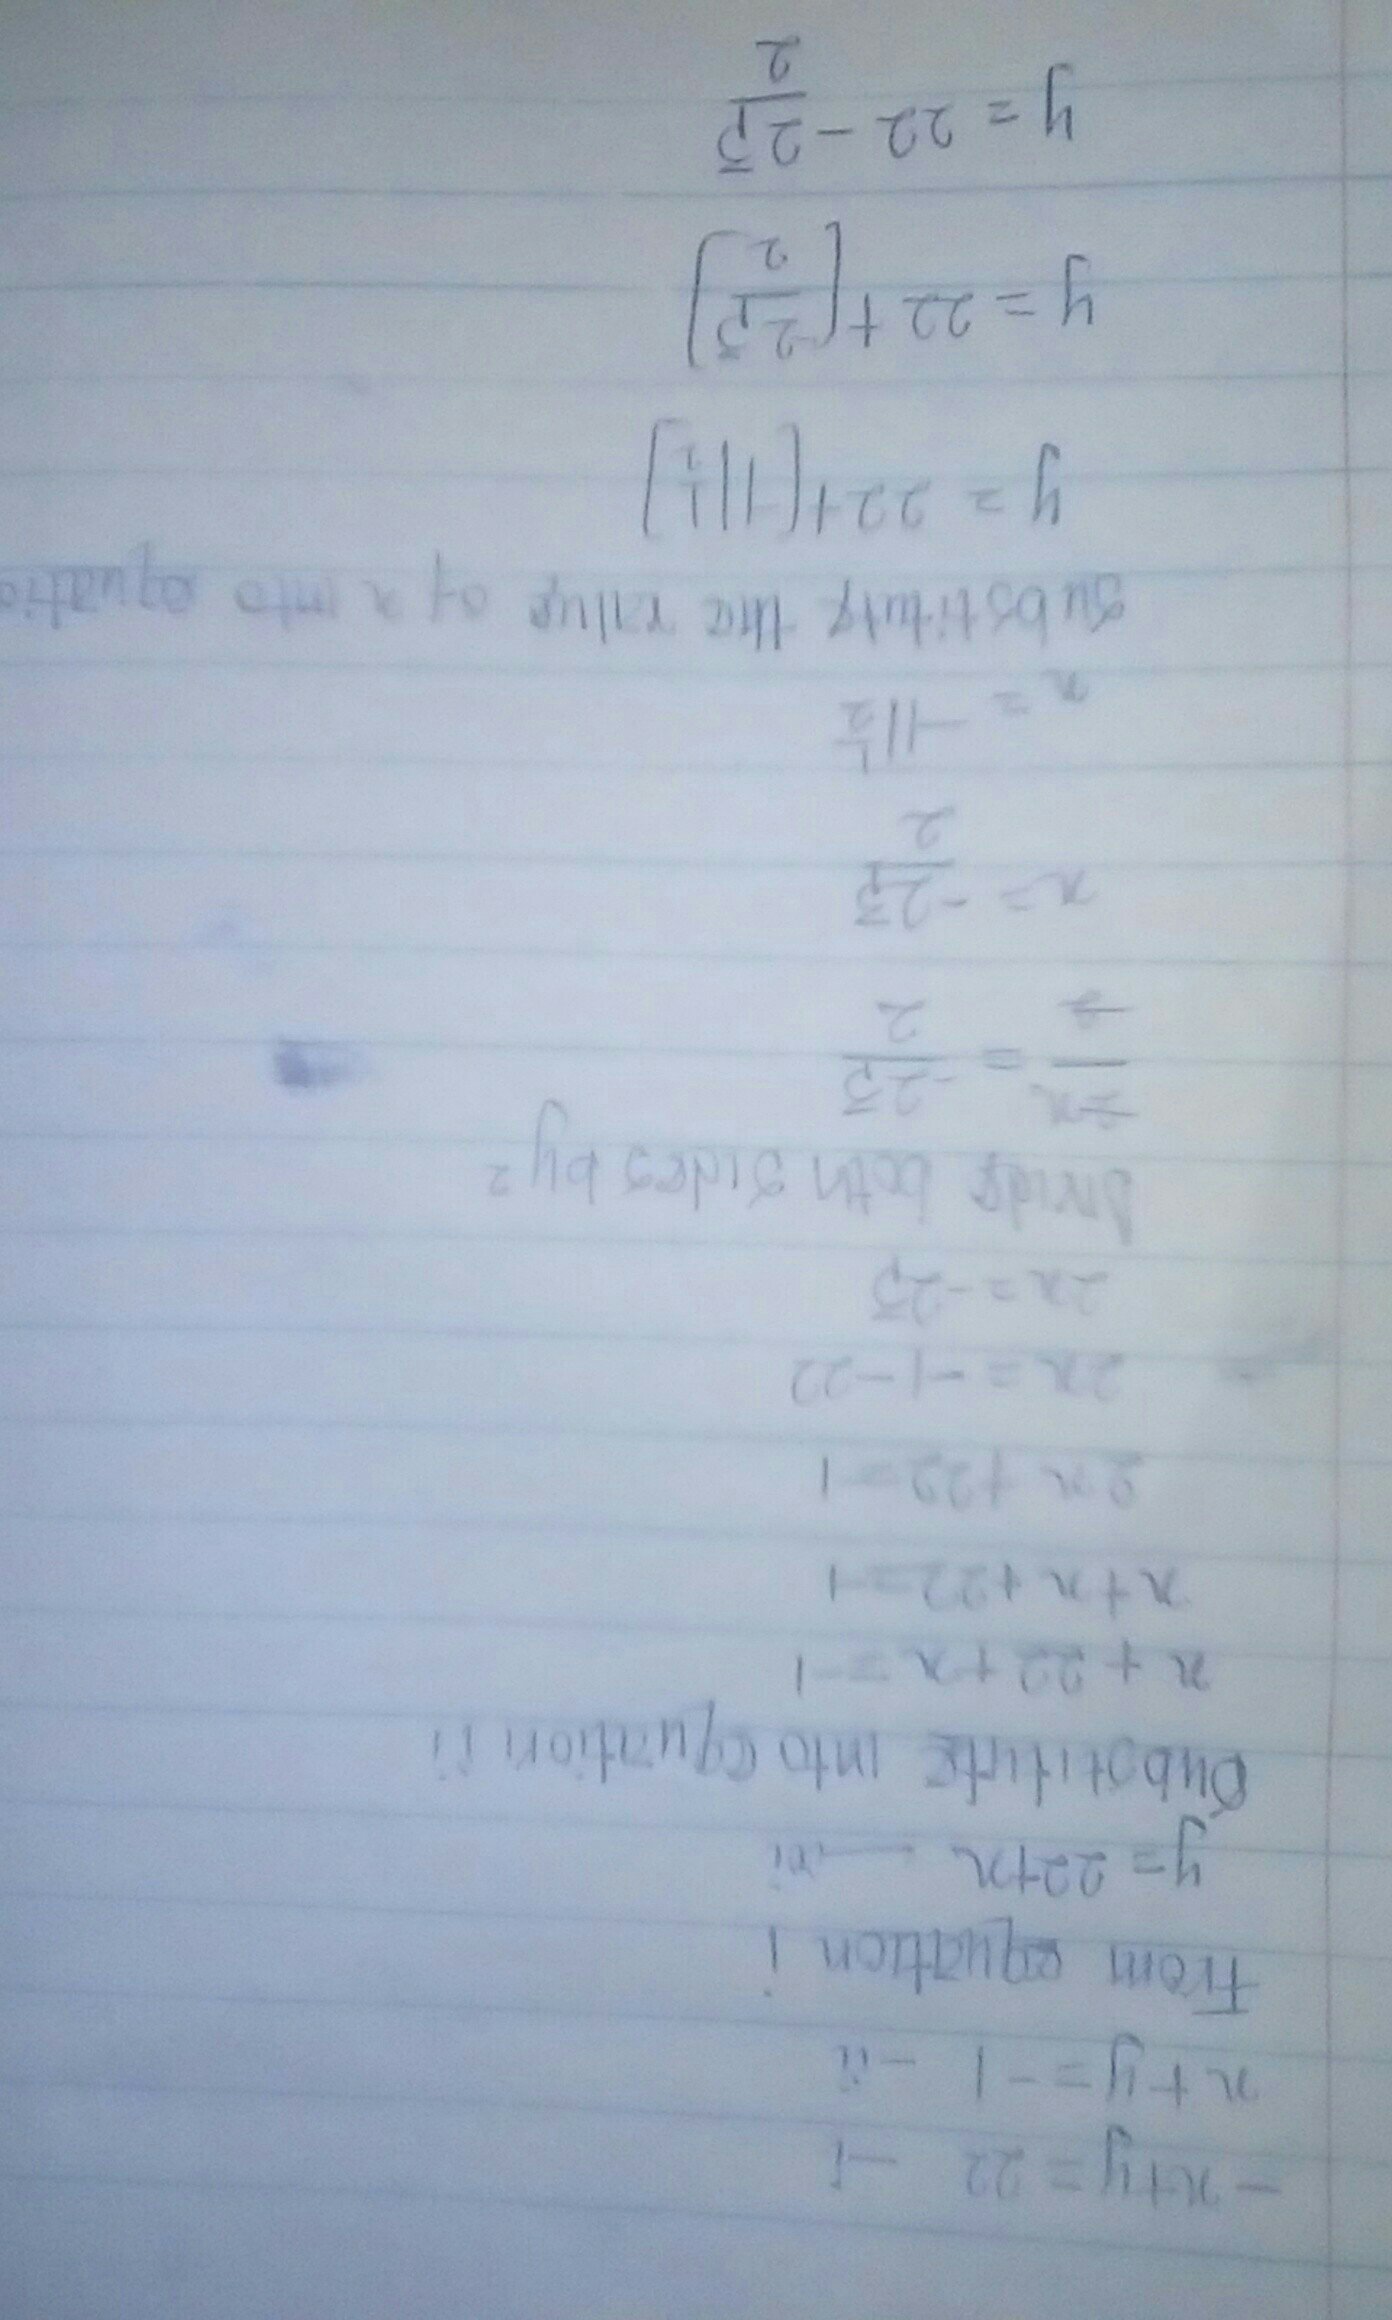 -x+y = 22 - i
x + y = -1 - ii
From equation i
y = 22+x — iii
Substitute into equation ii
x + 22 + x = -1
x + x + 22 = -1
2x + 22 = -1
2x = -1 - 22
2x = -23
Divide both sides by 2
2x/2 = -23/2
x = -23/2
x = -11 1/2
Substitute the value of x into equatio
y = 22 + [-11 1/2]
y = 22 + [-23/2]
y = 22 - 23/2